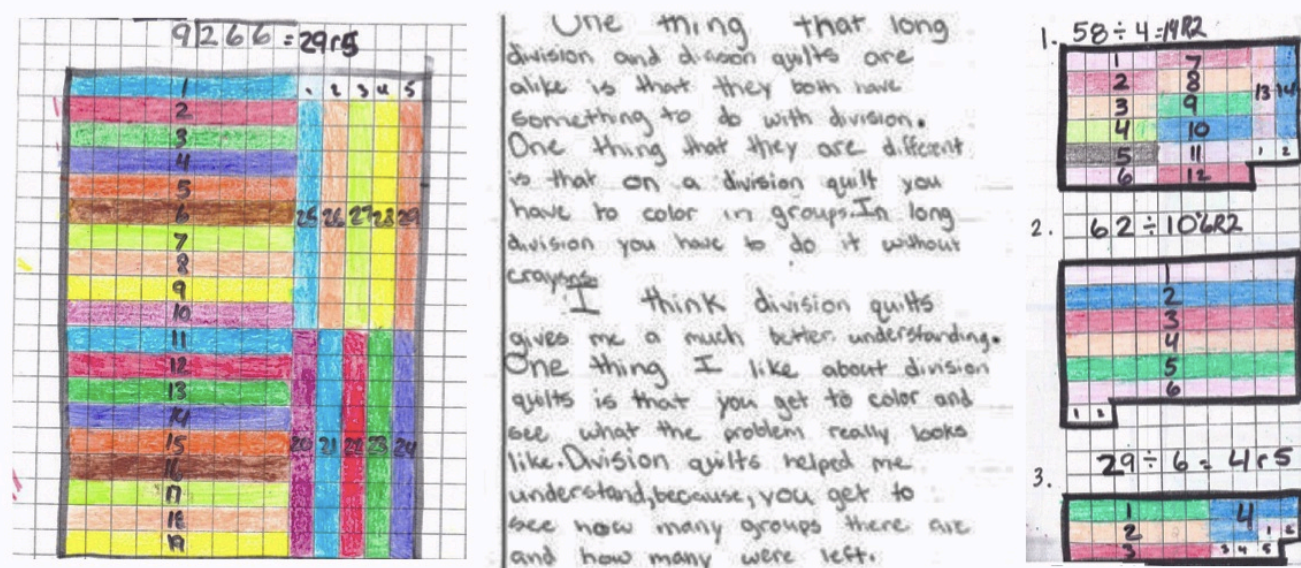 9 266 = 29r5
1 1 2 3 4 5
2
3
4
5
6 25 26 27 28 29
7
8
9
10
11
12
13
14
15 20 21 22 23 24
16
17
18
19
One thing that long
division and divison quilts are
alike is that they both have
something to do with division.
One thing that they are different
is that on a division quilt you
have to color in groups. In long
division you have to do it without
crayons.
I think division quilts
gives me a much better understanding.
One thing I like about division
quilts is that you get to color and
see what the problem really looks
like. Division quilts helped me
understand, because, you get to
see how many groups there are
and how many were left.
1. 58 ÷ 4 = 14R2
1 7
2 8
3 9 13 14
4 10
5 11 1 2
6 12
2. 62 ÷ 10 6R2
1
2
3
4
5
6
1 2
3. 29 ÷ 6 = 4r5
1 4
2 1 2
3 3 4 5